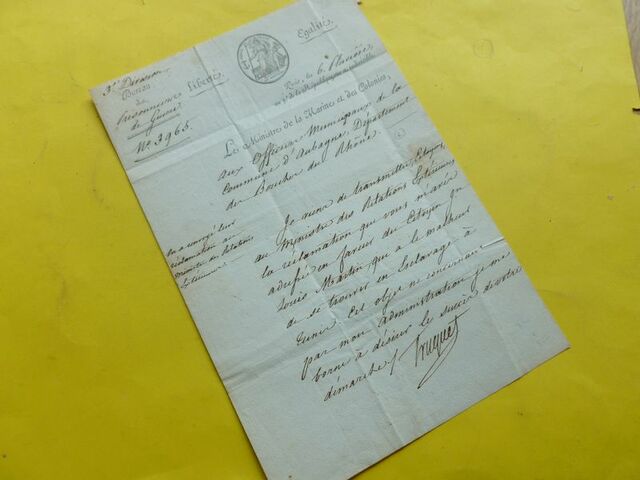 3e Division
Bureau
des
Prisonniers
de Guerre
No. 3965.
Liberté
Egalité
Paris, le 6 Pluviôse
Le Ministre de la Marine et des Colonies,
aux Officiers Municipaux de la
Commune d'Aubagne, Département
des Bouches du Rhône.
On a envoyé leur
réclamation au
Ministre des Relations
Extérieures
Je viens de transmettre, Citoyens,
au Ministre des Relations Extérieures
la réclamation que vous m'avez
adressée en faveur du Citoyen
Louis Martin, qui a le malheur
de se trouver en Esclavage à
Tunis. Cet objet ne concernant
pas mon administration, je me
borne à désirer le succès de votre
démarche.
Truguet